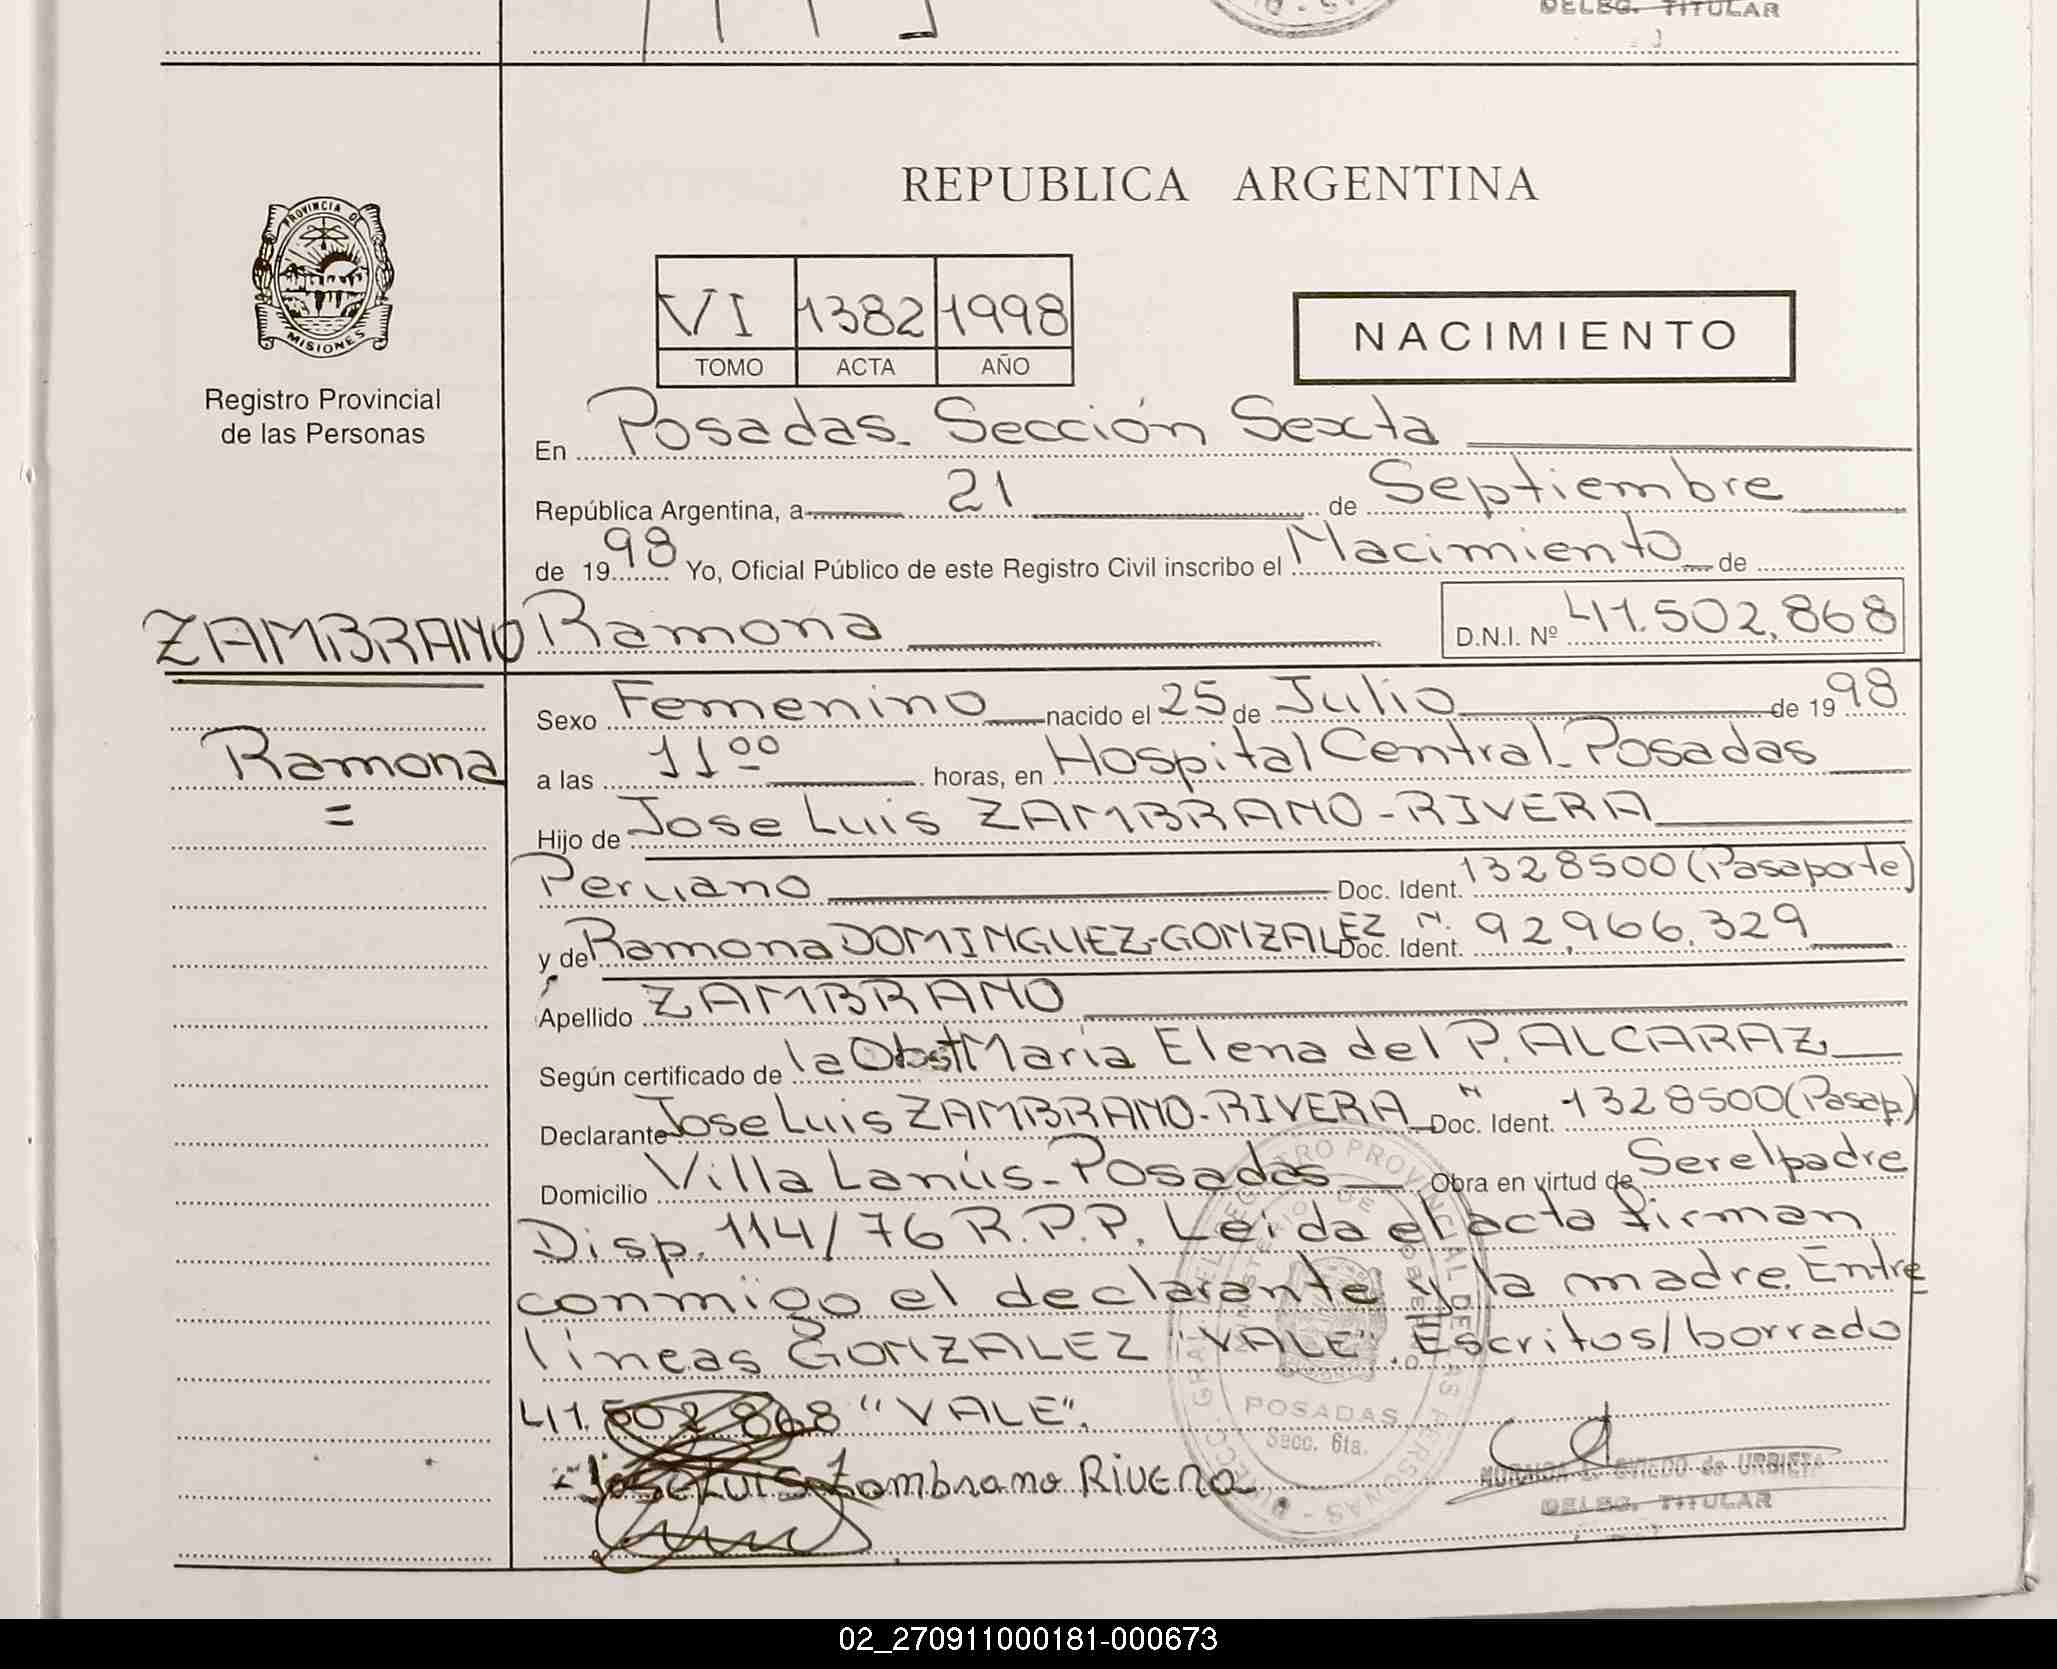 DELEG. TITULAR
REPUBLICA ARGENTINA
PROVINCIA DE
MISIONES
Registro Provincial
de las Personas
VI 1382 1998
TOMO ACTA AÑO
NACIMIENTO
En Posadas. Sección Sexta
República Argentina, a 21 de Septiembre
de 1998 Yo, Oficial Público de este Registro Civil inscribo el Nacimiento de
ZAMBRANO Ramona D.N.I. Nº 41.502.868
Sexo Femenino nacido el 25 de Julio de 1998
Ramona
=
a las 11 00 horas, en Hospital Central. Posadas
Hijo de Jose Luis ZAMBRANO-RIVERA
Peruano Doc. Ident. 1328500 (Pasaporte)
y de Ramona DOMINGUEZ-GONZALEZ Doc. Ident. N. 92.966.329
Apellido ZAMBRANO
Según certificado de la Obst Maria Elena del P. ALCARAZ
Declarante Jose Luis ZAMBRANO-RIVERA Doc. Ident. N 1328500 (Pasap.)
Domicilio Villa Lanús-Posadas Obra en virtud de Ser el padre
Disp. 114/76 R.P.P. Leida el acta firman
conmigo el declarante y la madre. Entre
líneas GONZALEZ "VALE". Escritos/borrado
41.502 868 "VALE".
Jose Luis Zambrano Rivera
POSADAS
Secc. 6ta.
OVIEDO de URBIETA
DELEG. TITULAR
02_270911000181-000673